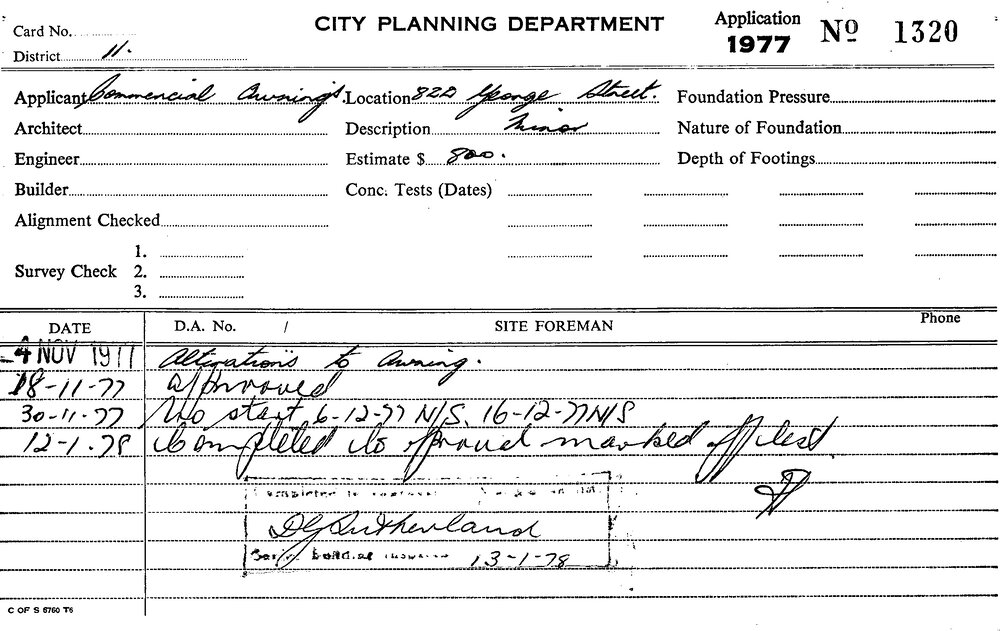 CITY PLANNING DEPARTMENT
Card No.
Application 1977 No 1320
District 11.
Applicant Commercial Awnings. Location 822 George Street. Foundation Pressure
Architect Description Minor Nature of Foundation
Engineer Estimate $ 800. Depth of Footings
Builder Conc. Tests (Dates)
Alignment Checked
1.
Survey Check 2.
3.
DATE D.A. No. / SITE FOREMAN Phone
-4 NOV 1977 Alterations to Awning.
18-11-77 approved
30-11-77 No start 6-12-77 N/S. 16-12-77 N/S
12-1-78 Completed to approval marked off list
Completed to approval
DG Sutherland
13-1-78
C OF S 6760 T6